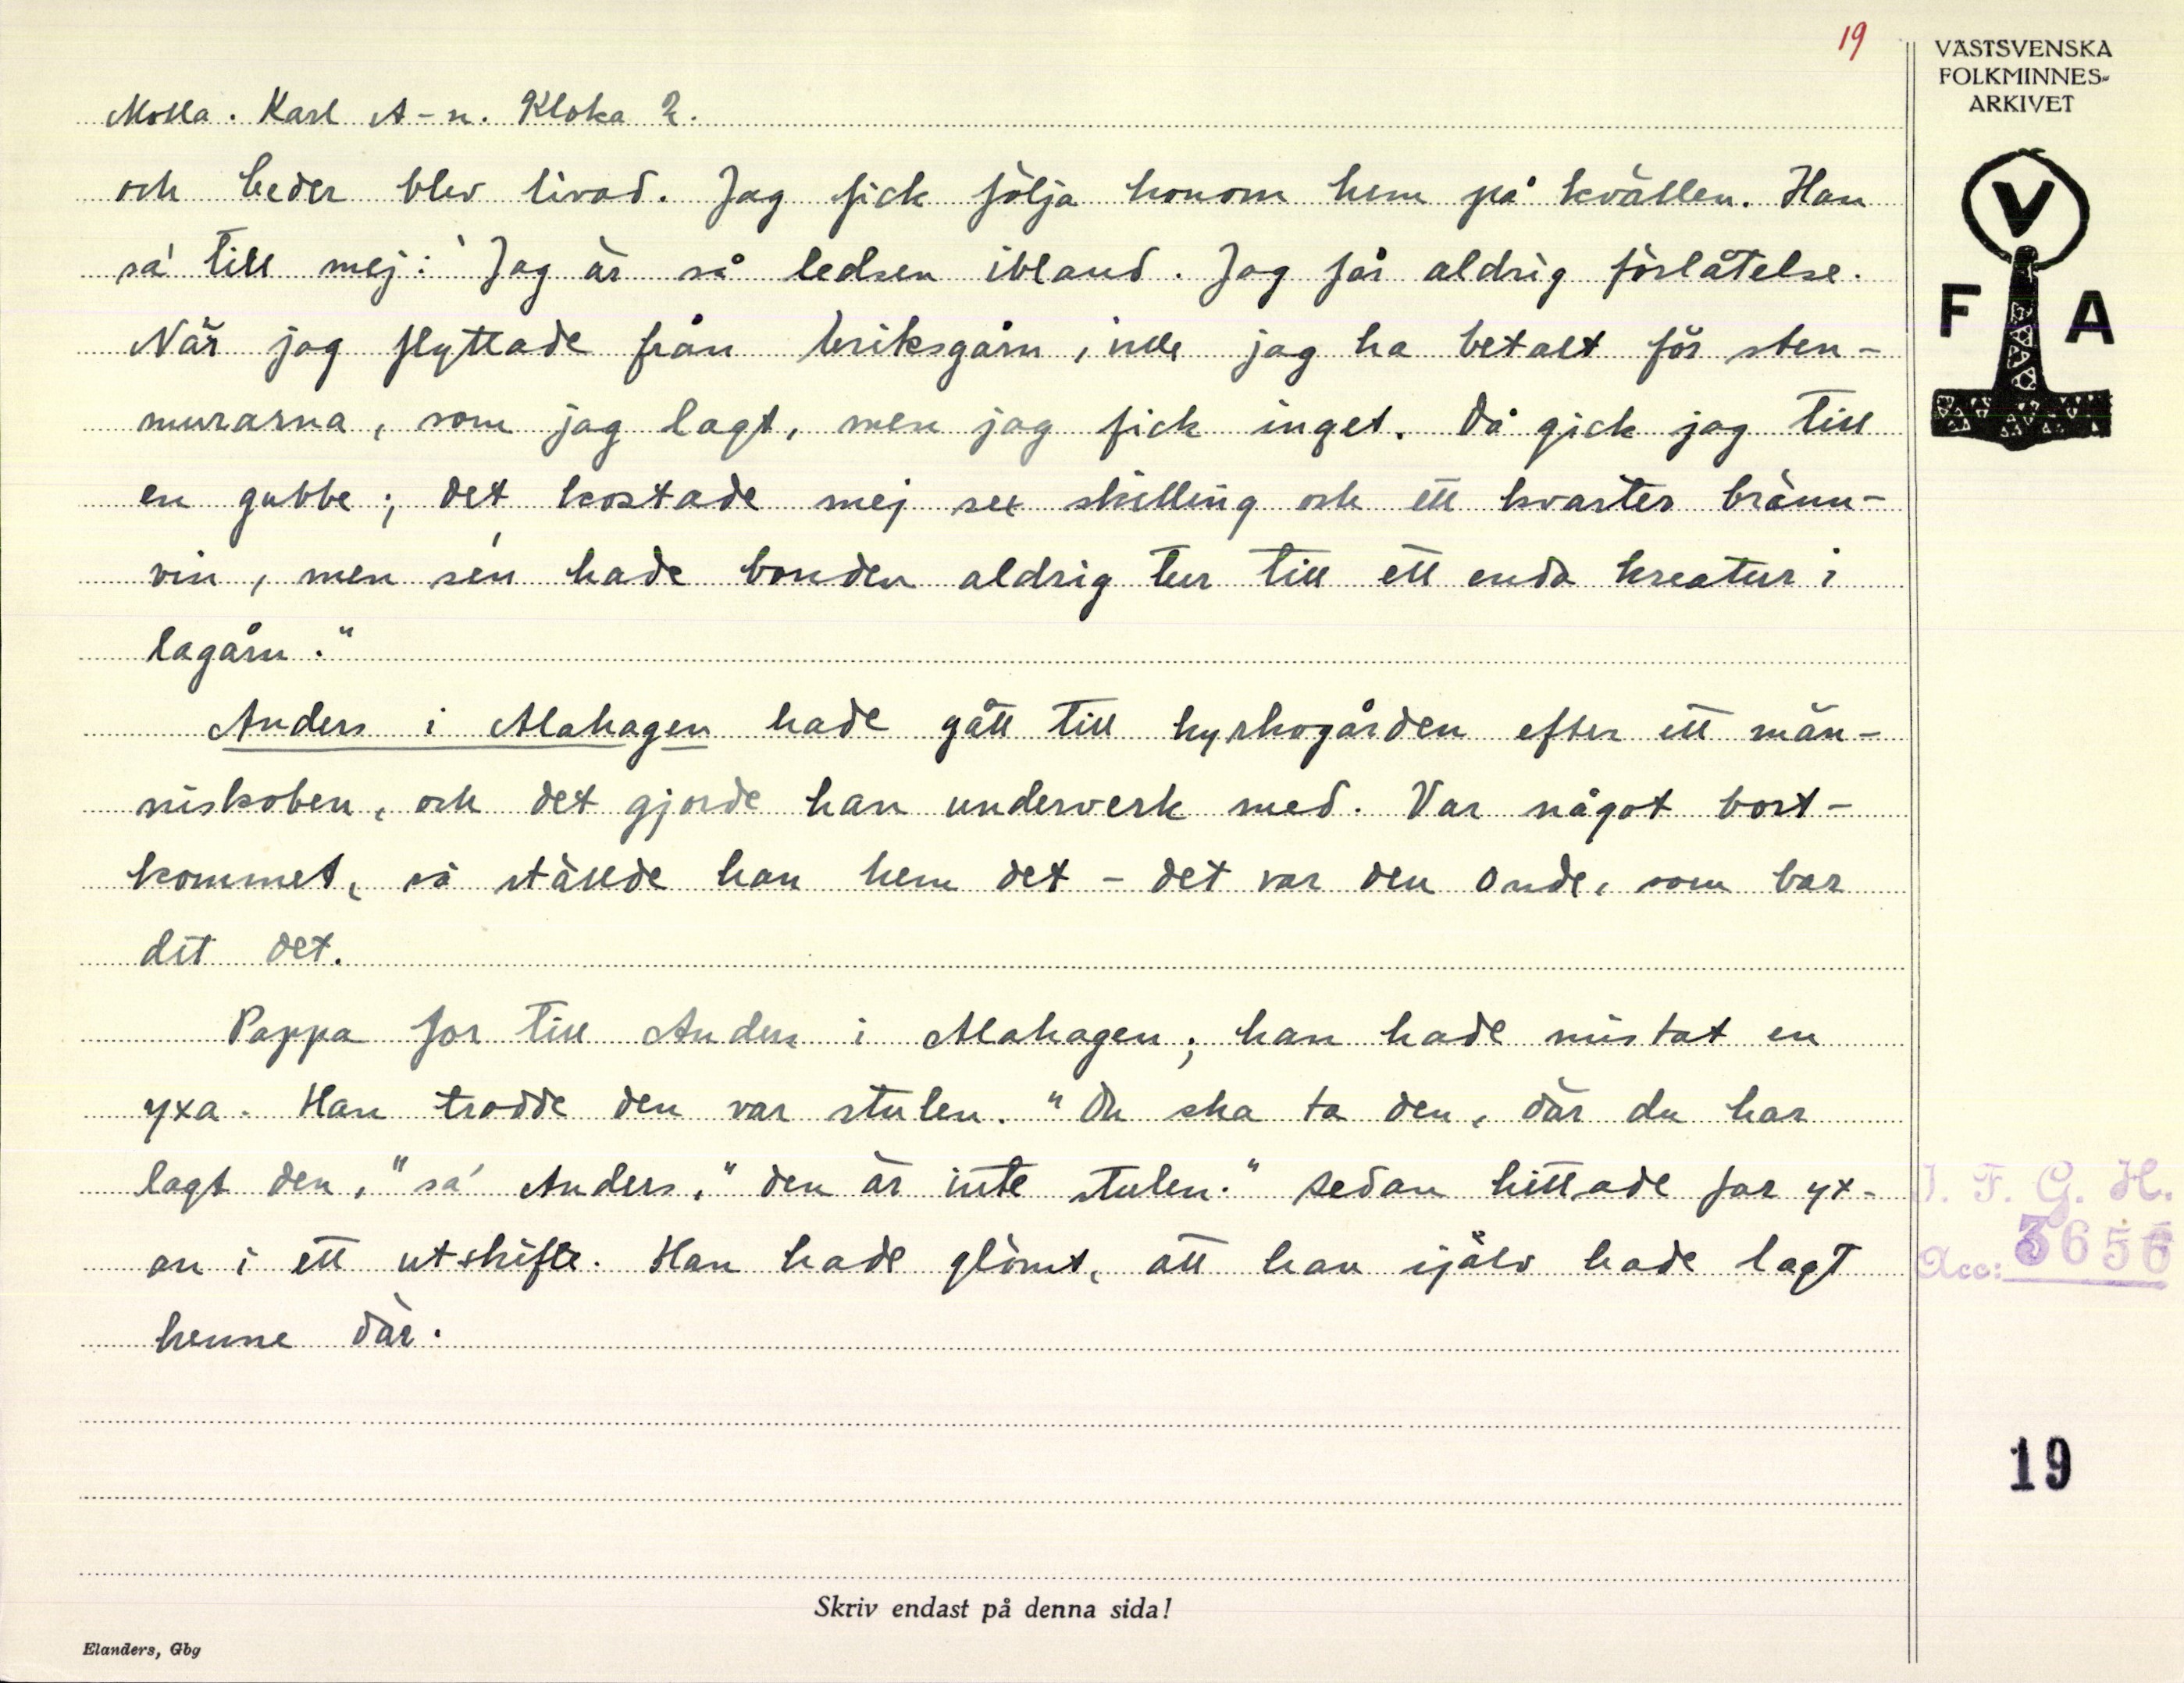 19
VÄSTSVENSKA
FOLKMINNES-
ARKIVET
Molla. Karl A-n. Kloka 2.
och beder blev livad. Jag fick följa honom hem på kvällen. Han
sa' till mej: "Jag är så ledsen ibland. Jag får aldrig förlåtelse.
När jag flyttade från briksgårn, ville jag ha betalt för sten-
murarna, som jag lagt, men jag fick inget. Då gick jag till
en gubbe; det kostade mej sex skilling och ett kvarter bränn-
vin, men sén hade bonden aldrig tur till ett enda kreatur i
lagårn."
Anders i Alahagen hade gått till kyrkogården efter ett män-
niskoben, och det gjorde han underverk med. Var något bort-
kommet, så ställde han hem det - det var den Onde, som bar
dit det.
Pappa for till Anders i Alahagen; han hade mistat en
yxa. Han trodde den var stulen. "Du ska ta den, där du har
lagt den," sa' Anders, "den är inte stulen." Sedan hittade far yx-
an i ett utskifte. Han hade glömt, att han själv hade lagt
henne där.
V
F A
I. F. G. H.
Acc: 3656
19
Skriv endast på denna sida!
Elanders, Gbg